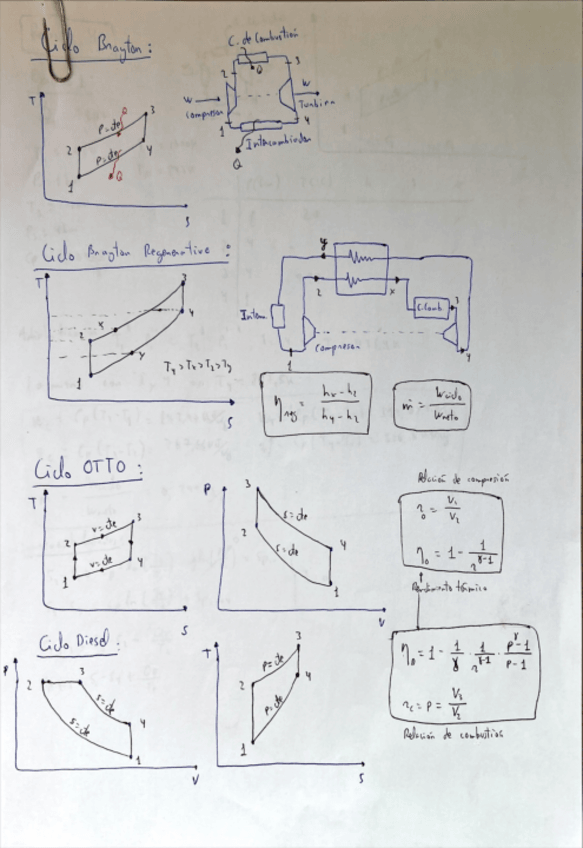 Ciclo Brayton:
C. de Combustión
Q
2
3
W
compresor
W
Turbina
1
4
Intercambiador
Q
T
Q
P=cte
3
2
P=cte
4
1
Q
S
Ciclo Brayton Regenerativo:
T
3
x
4
2
y
1
T4>Tx>T2>Ty
S
y
2
x
C.Comb
3
Interc.
compresor
1
4
ηreg = (hx-h2)/(h4-h2)
ṁ = Wciclo/Wneto
Ciclo OTTO:
T
v=cte
3
2
v=cte
4
1
S
P
3
s=cte
2
s=cte
4
1
V
Relación de compresión
r0 = V1/V2
η0 = 1 - 1/r^(γ-1)
Rendimiento térmico
Ciclo Diesel:
P
2
3
s=cte
s=cte
4
1
V
T
3
P=cte
2
4
P=cte
1
S
ηD = 1 - 1/γ · 1/r^(γ-1) · (ρ^γ-1)/(ρ-1)
rc = ρ = V3/V2
Relación de combustión